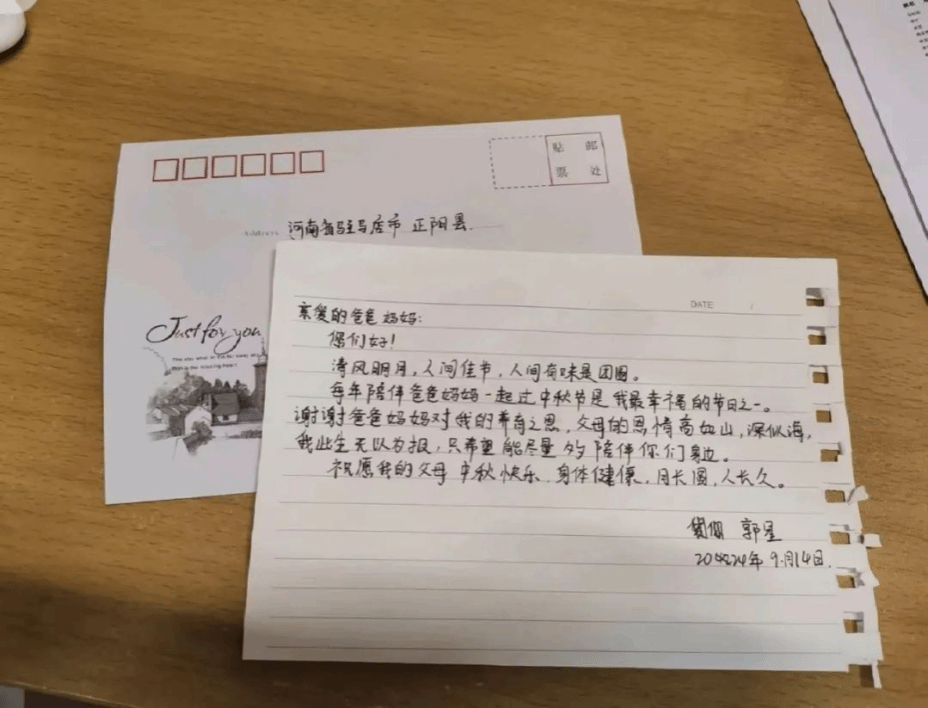 贴 邮
票 处
Address 河南省驻马店市 正阳县
Just for you
DATE /
亲爱的爸爸妈妈:
您们好!
清风明月,人间佳节,人间有味是团圆。
每年陪伴爸爸妈妈一起过中秋节是我最幸福的节日之一。
谢谢爸爸妈妈对我的养育之恩,父母的恩情高如山,深似海,
我此生无以为报,只希望能尽量多陪伴你们身边。
祝愿我的父母中秋快乐、身体健康,月长圆,人长久。
郭星
2024年9月14日.